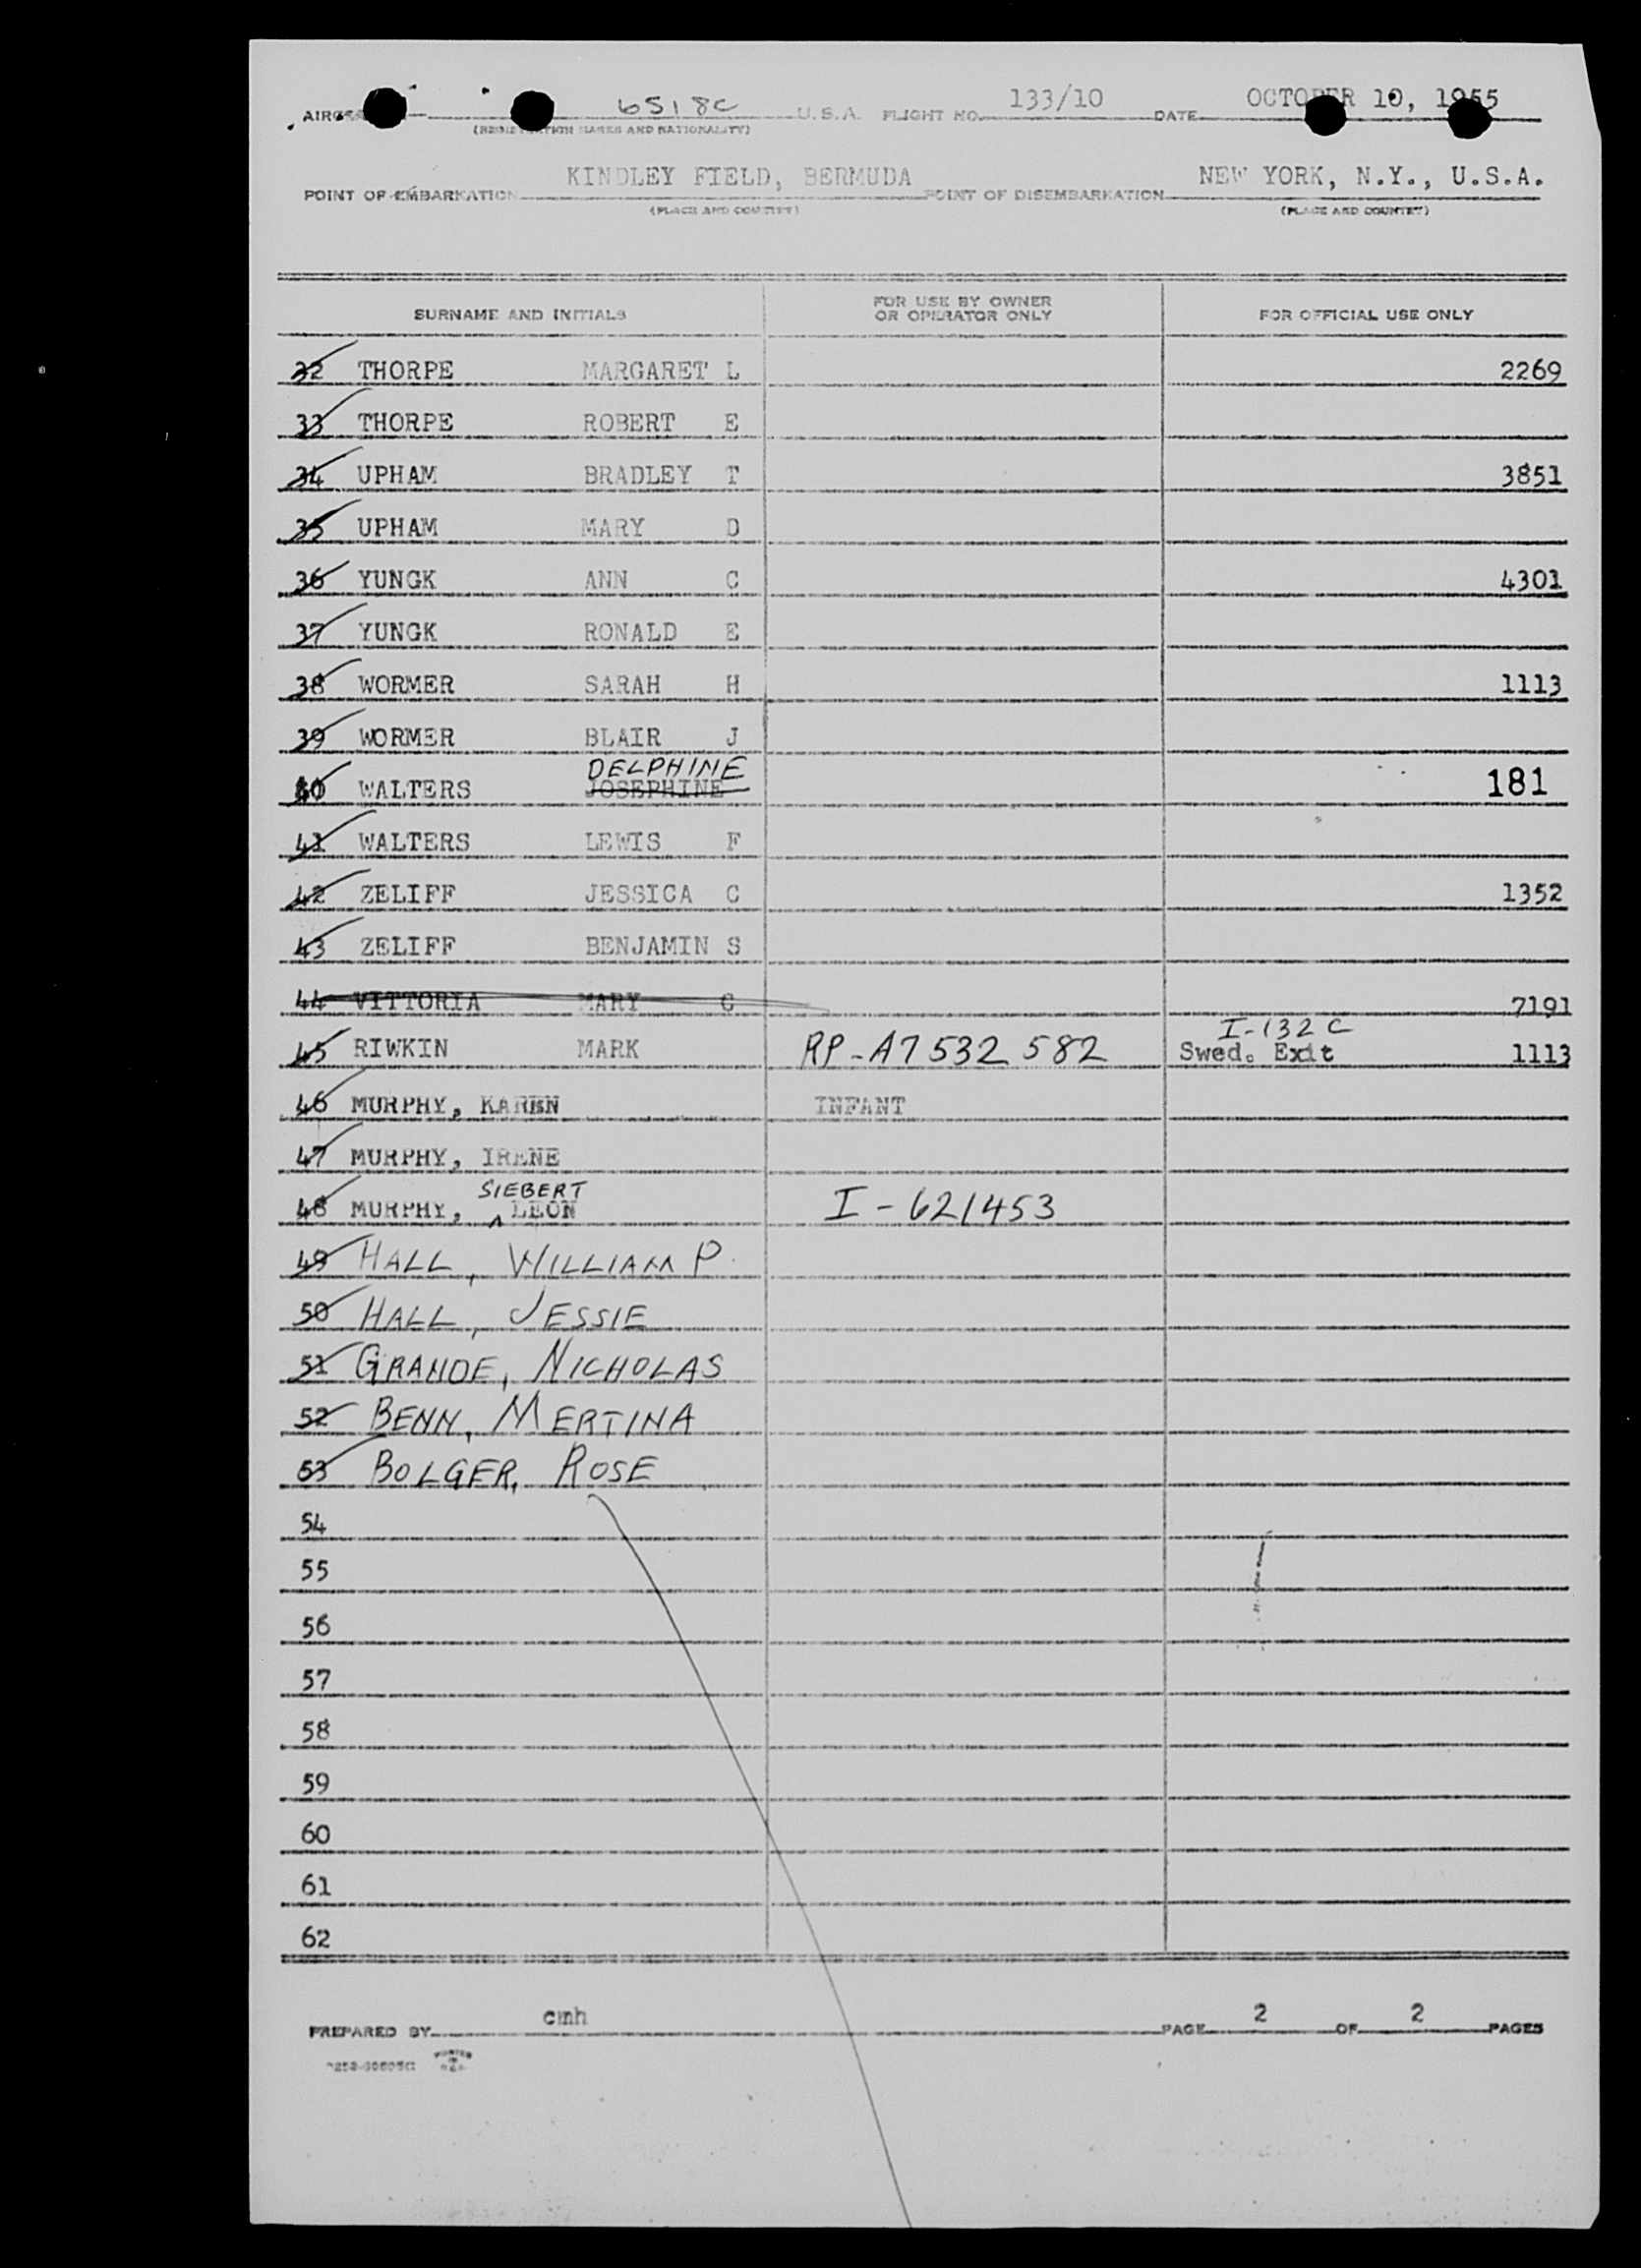 6518C U.S.A. FLIGHT NO. 133/10 DATE OCTOBER 10, 1955
(REGISTRATION MARKS AND NATIONALITY)
POINT OF EMBARKATION KINDLEY FIELD, BERMUDA POINT OF DISEMBARKATION NEW YORK, N.Y., U.S.A.
(PLACE AND COUNTRY) (PLACE AND COUNTRY)
SURNAME AND INITIALS FOR USE BY OWNER OR OPERATOR ONLY FOR OFFICIAL USE ONLY
32 THORPE MARGARET L 2269
33 THORPE ROBERT E
34 UPHAM BRADLEY T 3851
35 UPHAM MARY D
36 YUNGK ANN C 4301
37 YUNGK RONALD E
38 WORMER SARAH H 1113
39 WORMER BLAIR J
DELPHINE
40 WALTERS JOSEPHINE 181
41 WALTERS LEWIS F
42 ZELIFF JESSICA C 1352
43 ZELIFF BENJAMIN S
44 VITTORIA MARY C 7191
I-132C
45 RIWKIN MARK RP-A7532582 Swed. Exit 1113
46 MURPHY, KAREN INFANT
47 MURPHY, IRENE
SIEBERT
48 MURPHY, LEON I-621453
49 HALL, WILLIAM P.
50 HALL, JESSIE
51 GRANDE, NICHOLAS
52 BENN, MERTINA
53 BOLGER, ROSE
54
55
56
57
58
59
60
61
62
PREPARED BY cmh PAGE 2 OF 2 PAGES